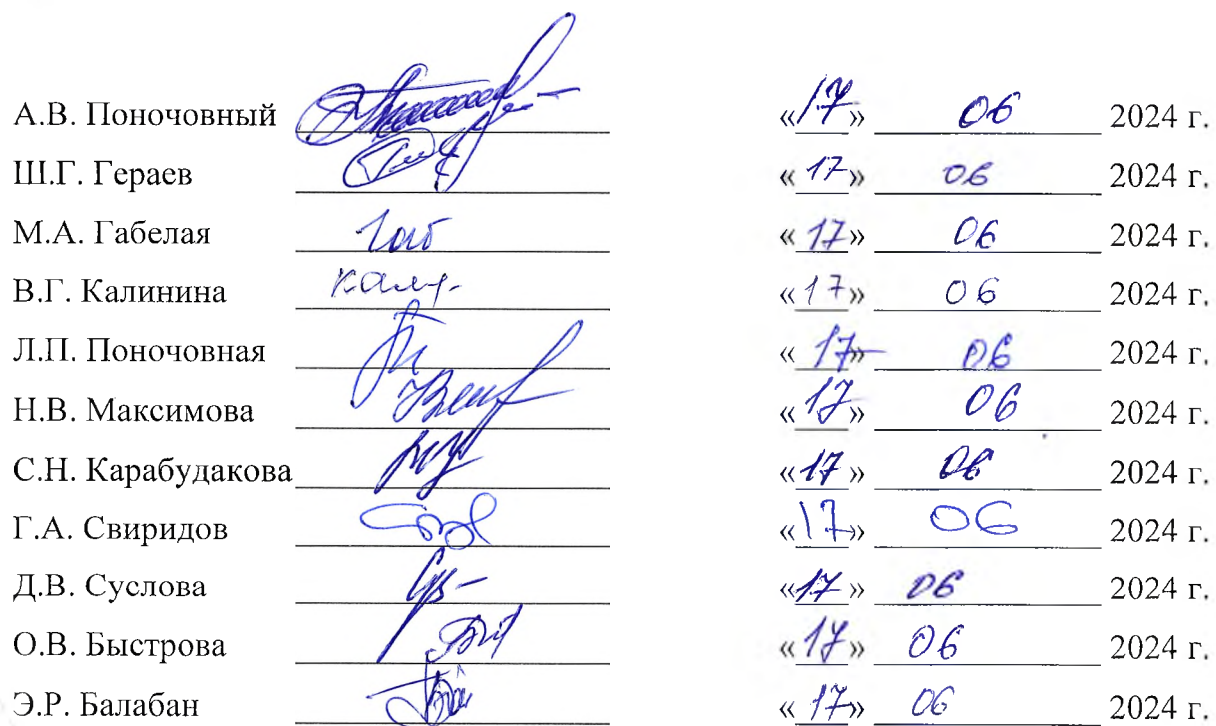 А.В. Поночовный «17» 06 2024 г.
Ш.Г. Гераев «17» 06 2024 г.
М.А. Габелая Габ «17» 06 2024 г.
В.Г. Калинина «17» 06 2024 г.
Л.П. Поночовная «17» 06 2024 г.
Н.В. Максимова «17» 06 2024 г.
С.Н. Карабудакова «17» 06 2024 г.
Г.А. Свиридов «17» 06 2024 г.
Д.В. Суслова «17» 06 2024 г.
О.В. Быстрова «17» 06 2024 г.
Э.Р. Балабан «17» 06 2024 г.